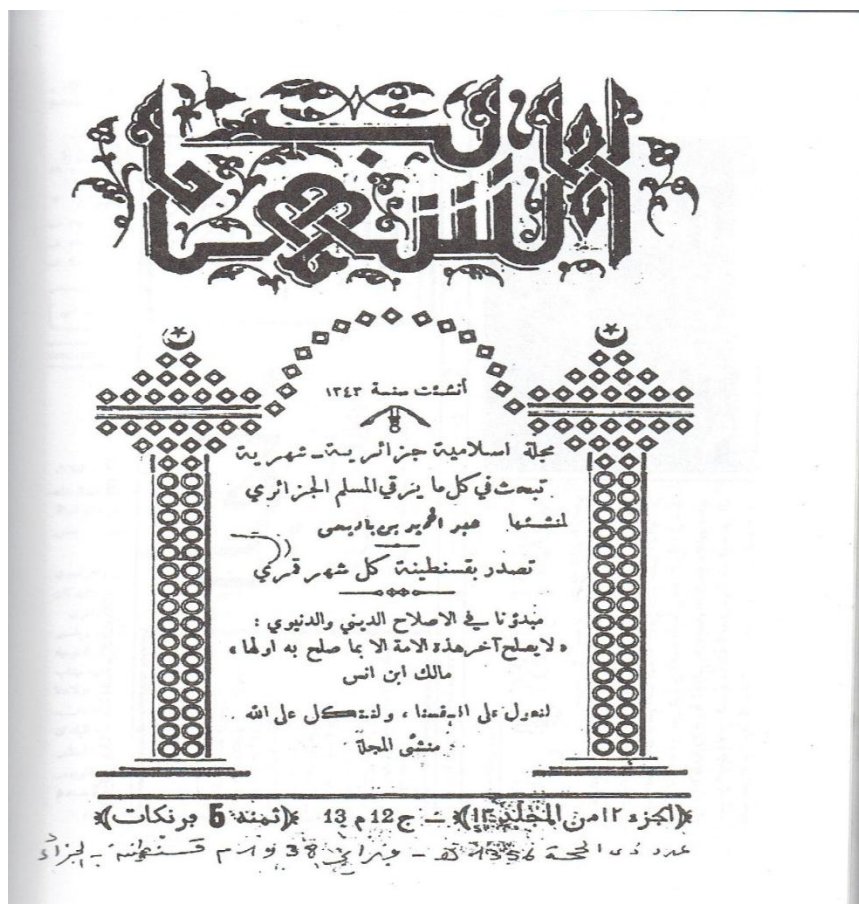 الشهاب
أنشئت سنة ١٣٤٣
مجلة اسلامية جزائرية - شهرية
تبحث في كل ما يرقي المسلم الجزائري
لمنشئها عبد الحميد بن باديس
تصدر بقسنطينة كل شهر قمري
مبدؤنا في الاصلاح الديني والدنيوي :
« لا يصلح آخر هذه الامة الا بما صلح به اولها »
مالك ابن انس
لنعول على انفسنا ، ولنتكل على الله
منشئ المجلة
﴿الجزء ١٢ من المجلد ١٣﴾ - ج 12 م 13 ﴿ثمنه 5 فرنكات﴾
عدد ذي الحجة 1356 هـ - 38 م قسنطينة - الجزائر